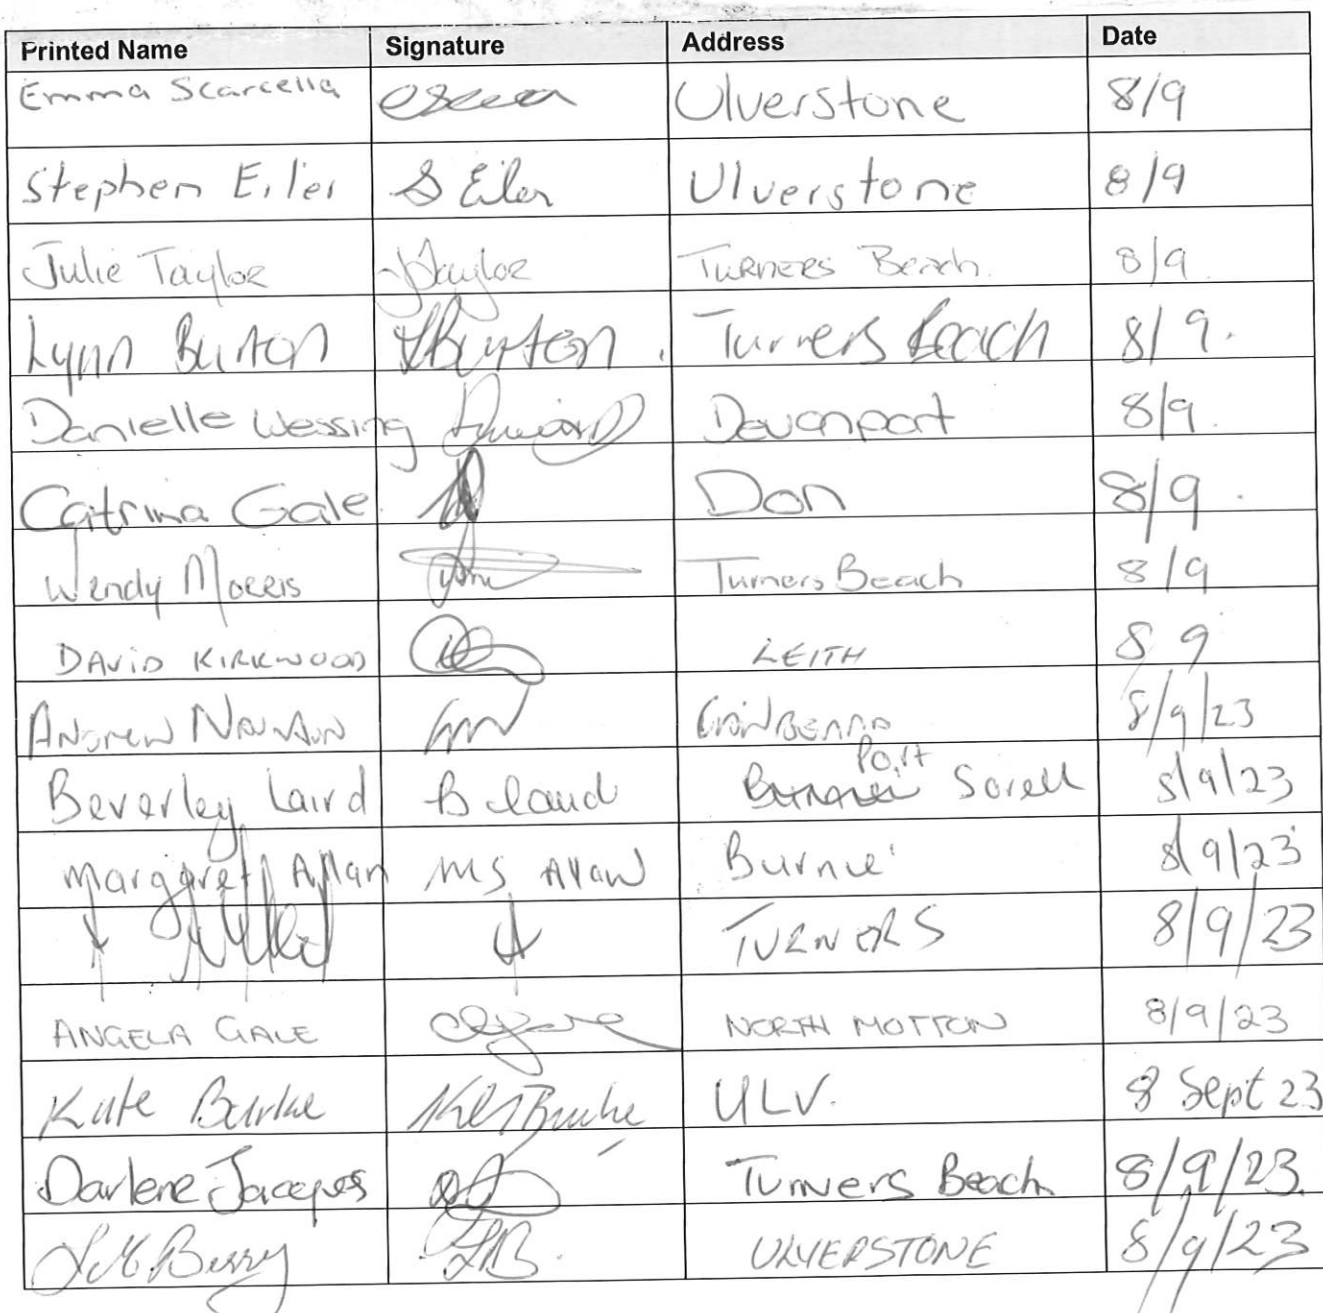 Printed Name Signature Address Date
Emma Scarcella Ulverstone 8/9
Stephen Eiler S Eiler Ulverstone 8/9
Julie Taylor JTaylor Turners Beach. 8/9
Lynn Burton LBurton. Turners Beach 8/9.
Danielle Wessing Devonport 8/9.
Catrina Gale Don 8/9.
Wendy Morris Turners Beach 8/9
DAVID KIRKWOOD LEITH 8 9
Andrew 8/9/23
Port
Beverley Laird B Laird Sorell 8/9/23
Margaret Allan MS Allan Burnie 8/9/23
TURNERS 8/9/23
ANGELA GALE NORTH MOTTON 8/9/23
Kate Burke Burke ULV. 8 Sept 23
Darlene Jacques Turners Beach 8/9/23.
Berry LB. ULVERSTONE 8/9/23